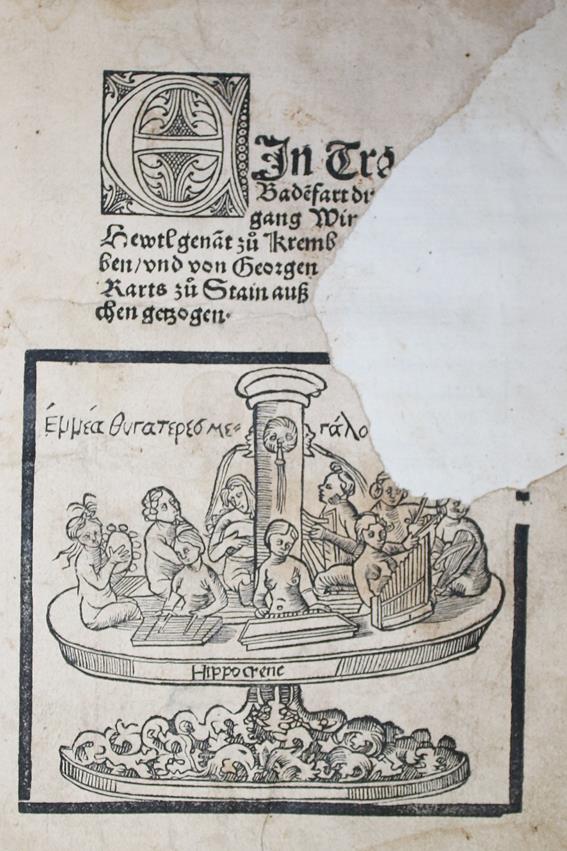 EIn Trö
Badēfart di
gang Wir
Hewtl genāt zů Kremb
ben/vnd von Georgen
Rarts zů Stain auß
chen getzogen.
ἐμμέα θυγατερες με- γάλο
Hippocrene